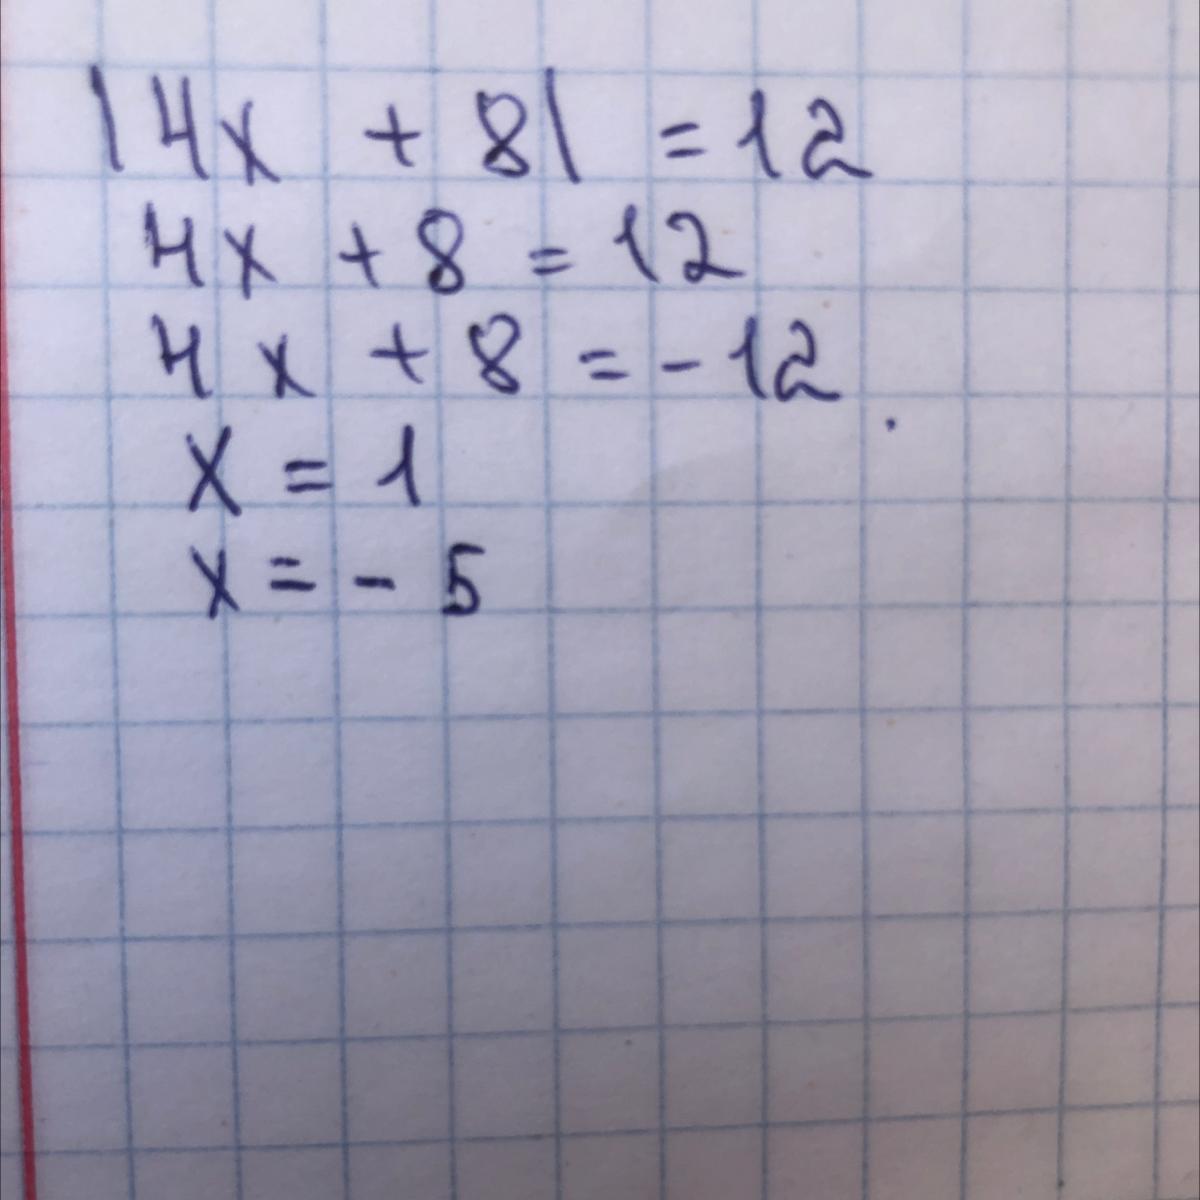 |4x + 8| = 12
4x + 8 = 12
4x + 8 = -12
x = 1
x = - 5